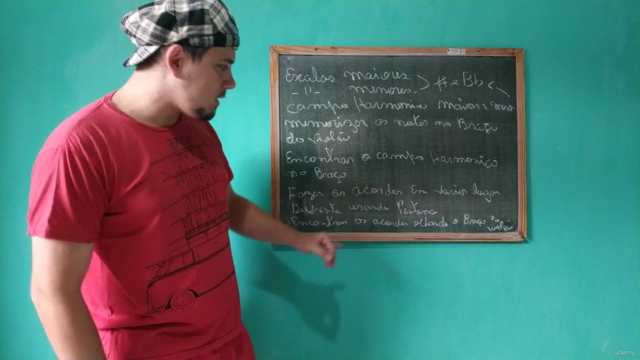 Escalas maiores
-11- menores. # e Bb
campo Harmonico maior e menor
memorizar as notas no Braço
do violão
Encontrar o campo Harmonico
no Braço
Fazer os acordes Em varios lugar
Diferente usando Pestana
Encontrar os acordes olhando o Braço do violão
udemy